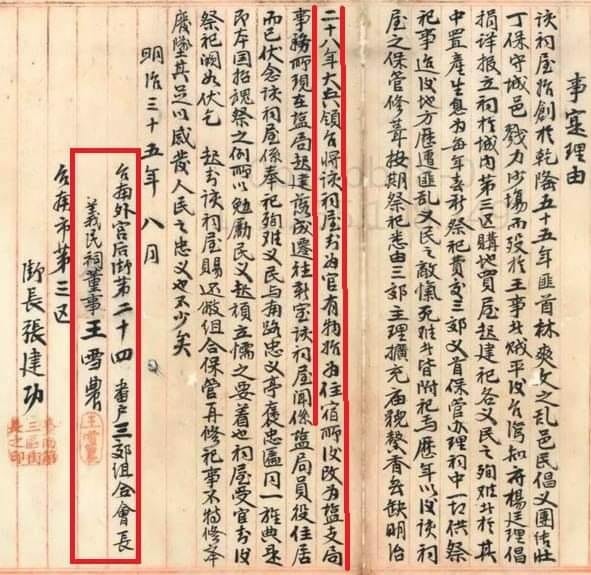 事寔理由
該祠屋指創於乾隆五十五年匪首林爽文之乱邑民倡义團結壯
丁保守城邑戮力沙塲而歿於王事者賊平後台灣知府楊廷理倡
捐详报立祠於城內第三区購地買屋起建祀各义民之殉难者於其
中置產生息为每年春秋祭祀費交三郊义首保管办理祠中一切供祭
祀事迨後地方歷遭匪乱义民之敵愾死难者皆附祀焉歷年以後該祠
屋之保管修葺按期祭祀悉由三郊主理擴充庙貌馨香無缺明治
二十八年大兵領台將該祠屋封为官有物指为住宿所後改为塩支局
事務所現在塩局起建落成遷往新室該祠屋闻係塩局員役住居
而已伏念該祠屋係奉祀殉难义民与南路忠义亭褒忠匾同一旌典是
即本国招魂祭之例所以勉勵民义起頑立懦之要着也祠屋受官封後
祭祀 如伏乞 起封該祠屋賜还敝組合保管再修祀事不特修举
廢墜其足以感發人民之忠义也不少矣
明治三十五年八月
台南外宮后街第二十四番户三郊組合會長
義民祠董事王雪農
王雪農
台南市第三区
街長張建功